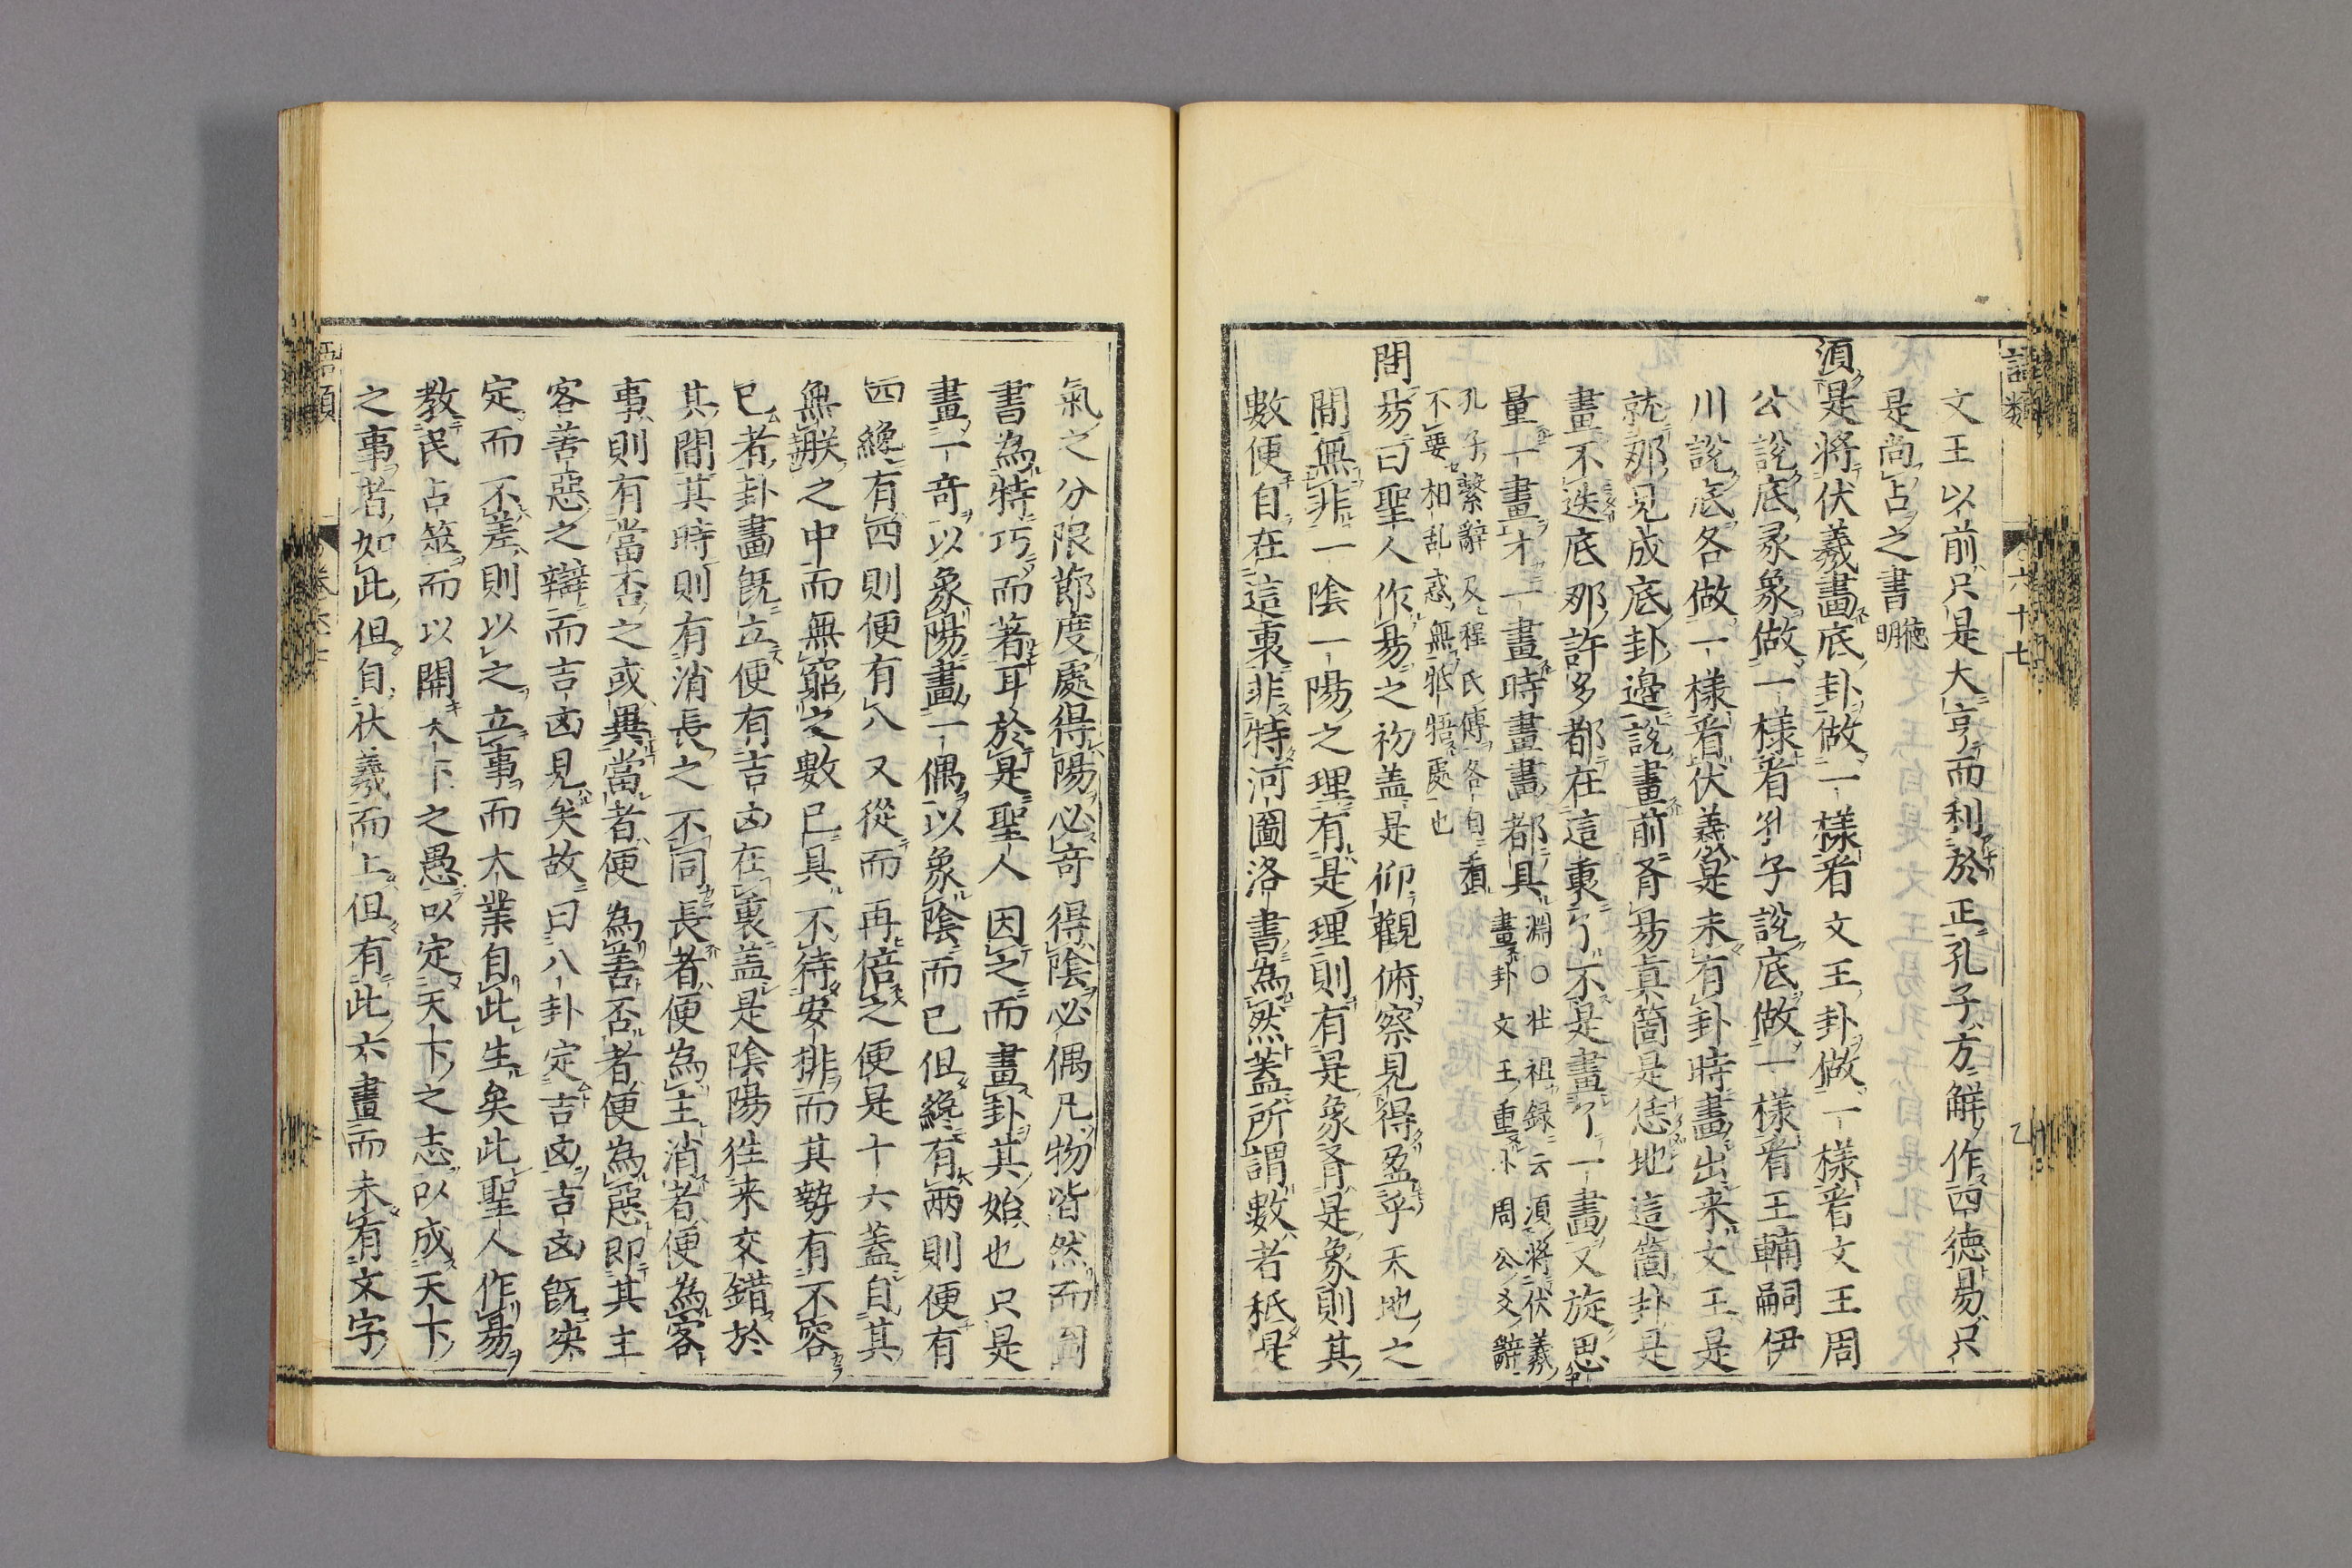 語類
六十七
乙
文王以前只是大亨而利於正孔子方解作四德易只
是尚占之書 德明
須是將伏羲畫底卦做一樣看文王卦做一樣看文王周
公說底彖象做一樣看孔子說底做一樣看王輔嗣伊
川說底各做一樣看伏羲是未有卦時畫出来文王是
就那見成底卦邉說畫前有易真箇是恁地這箇卦是
畫不迭底那許多都在這裏了不是畫了一畫又旋思
量一畫才一畫時畫畫都具 淵○壮祖録云須將伏羲
畫卦文王重卦周公爻辭
孔子繫辭及程氏傳各自看
不要相乱惑無牴牾處也
問易曰聖人作易之初盖是仰觀俯察見得盈乎天地之
間無非一陰一陽之理有是理則有是象有是象則其
數便自在這裏非特河圖洛書為然蓋所謂數者秖是
氣之分限節度處得陽必竒得陰必偶凡物皆然而圖
書為特巧而著耳於是聖人因之而畫卦其始也只是
畫一竒以象陽畫一偶以象陰而已但纔有兩則便有
四纔有四則便有八又從而再倍之便是十六蓋自其
無朕之中而無窮之數已具不待安排而其勢有不容
已者卦畫旣立便有吉凶在裏盖是陰陽徃来交錯於
其間其時則有消長之不同長者便為主消者便為客
事則有當否之或異當者便為善否者便為惡即其主
客善惡之辯而吉凶見矣故曰八卦定吉凶吉凶旣决
定而不差則以之立事而大業自此生矣此聖人作易
教民占筮而以開天下之愚以定天下之志以成天下
之事者如此但自伏羲而上但有此六畫而未有文字
語類
卷六十七